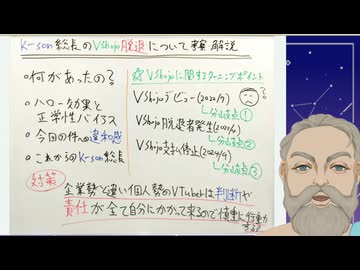 K-son総長のVShojo脱退について考察・解説
○何があったの?
○ハロー効果と
正常性バイアス
○今回の件への違和感
○これからのK-son総長
☆VShojoに関するターニングポイント
VShojoデビュー(2022/7)
分岐点①
VShojo脱退者発生(2023/9)
分岐点②
VShojo支払い停止(2024/9)
分岐点③
対策
企業勢と違い個人勢のVTuberは判断や
責任が全て自分にかかって来るので慎重に行動
する